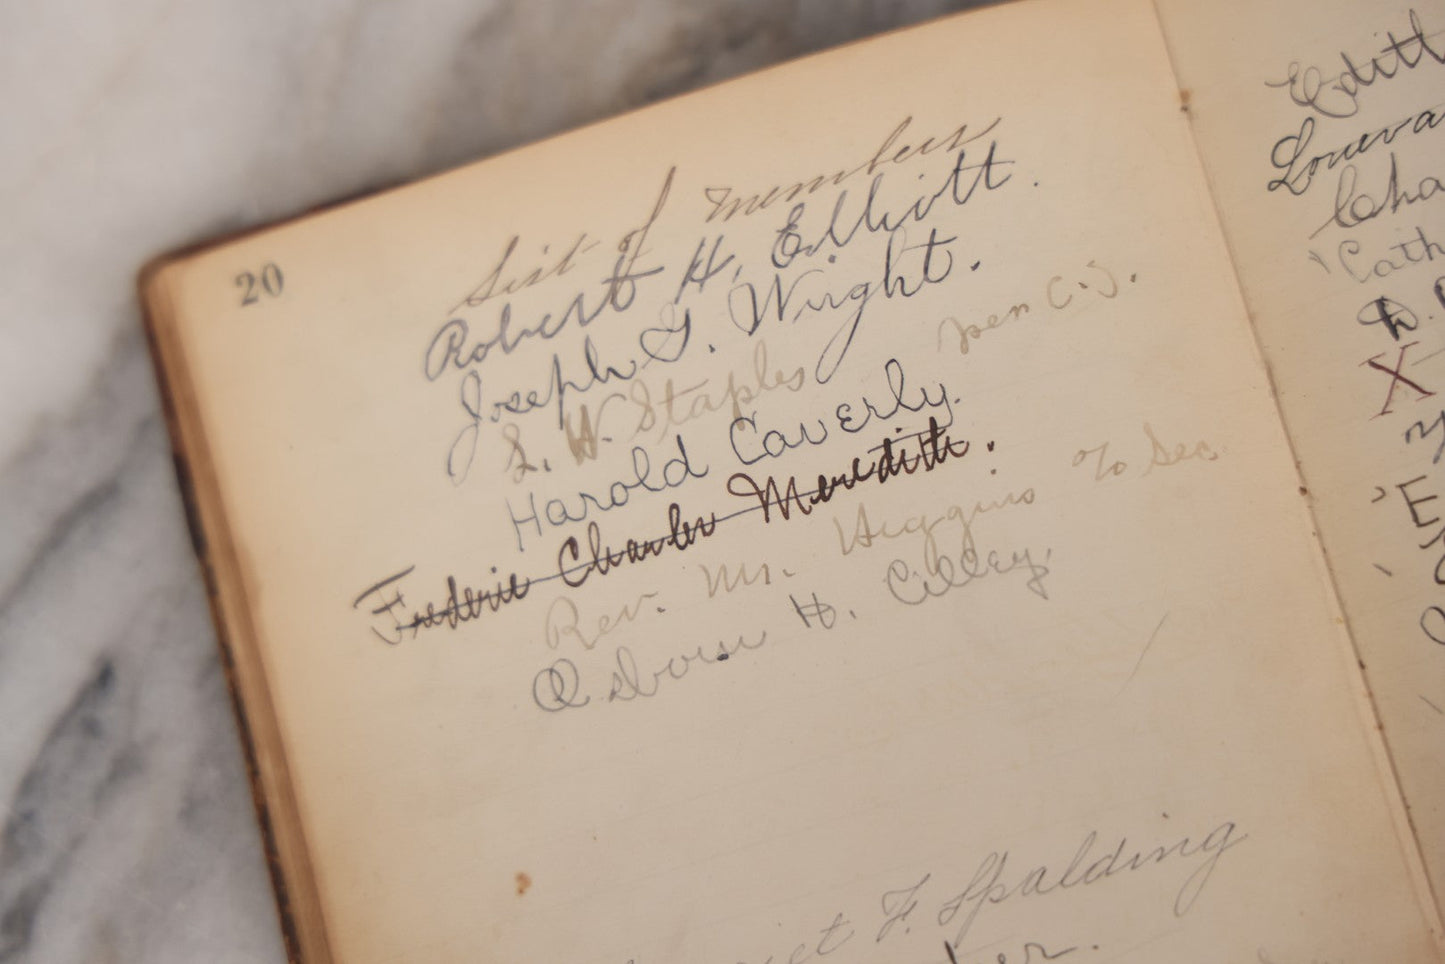 20
List of members
Robert H. Elliott.
Joseph G. Wright.
S. W. Staples pen C.S.
Harold Caverly.
Frederic Charles Meredith.
Rev. Mr. Higgins % Sec.
Osborne H. Cilley.
F. Spalding
Edith
Loueva
Cha
Cath
X